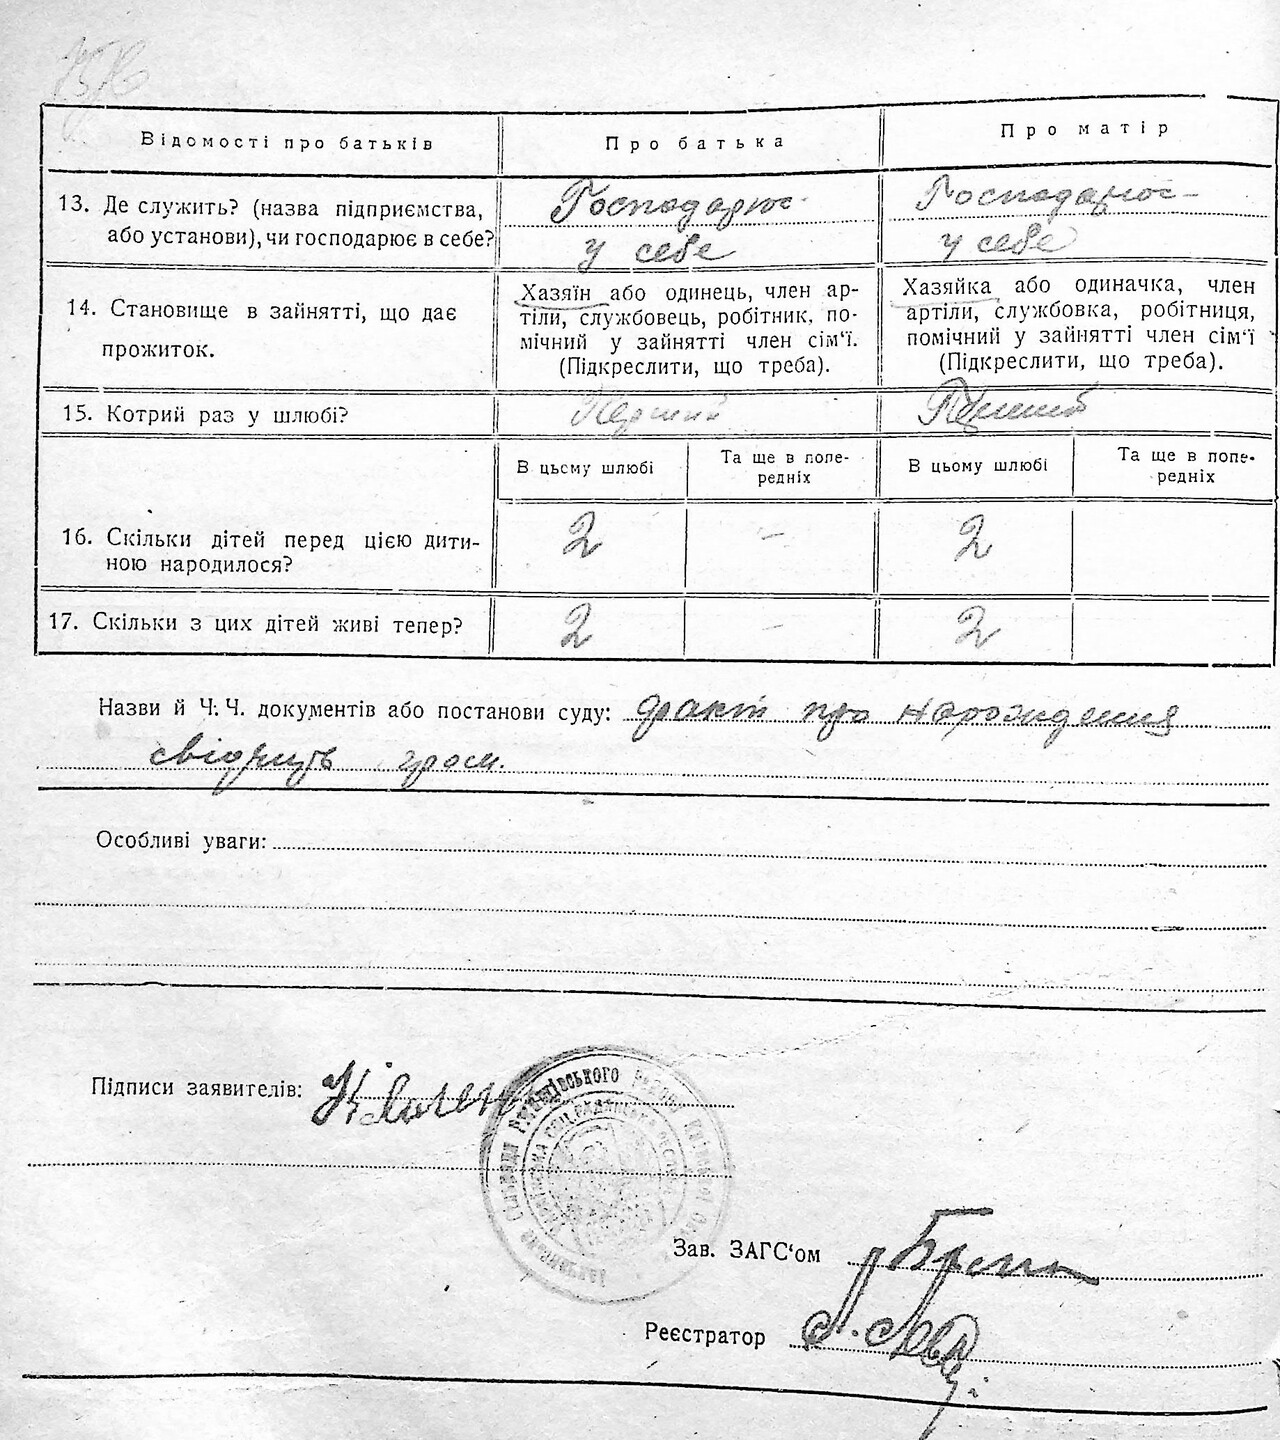 Відомості про батьків
Про батька
Про матір
13. Де служить? (назва підприємства,
або установи), чи господарює в себе?
Господарює
у себе
Господарює
у себе
14. Становище в зайнятті, що дає
прожиток.
Хазяїн або одинець, член ар-
тіли, службовець, робітник, по-
мічний у зайнятті член сім'ї.
(Підкреслити, що треба).
Хазяйка або одиначка, член
артіли, службовка, робітниця,
помічний у зайнятті член сім'ї
(Підкреслити, що треба).
15. Котрий раз у шлюбі?
Перший
Перший
В цьому шлюбі
Та ще в попе-
редніх
В цьому шлюбі
Та ще в попе-
редніх
16. Скільки дітей перед цією дити-
ною народилося?
2
-
2
17. Скільки з цих дітей живі тепер?
2
-
2
Назви й Ч. Ч. документів або постанови суду: факт про нарождения
свідчить гром.
Особливі уваги:
Підписи заявителів:
Зав. ЗАГС'ом
Реєстратор